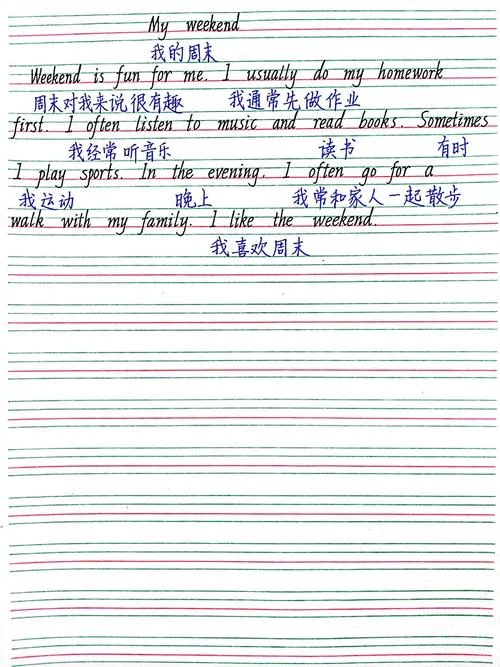 My weekend
我的周末
Weekend is fun for me. I usually do my homework
周末对我来说很有趣 我通常先做作业
first. I often listen to music and read books. Sometimes
我经常听音乐 读书 有时
I play sports. In the evening. I often go for a
我运动 晚上 我常和家人一起散步
walk with my family. I like the weekend.
我喜欢周末